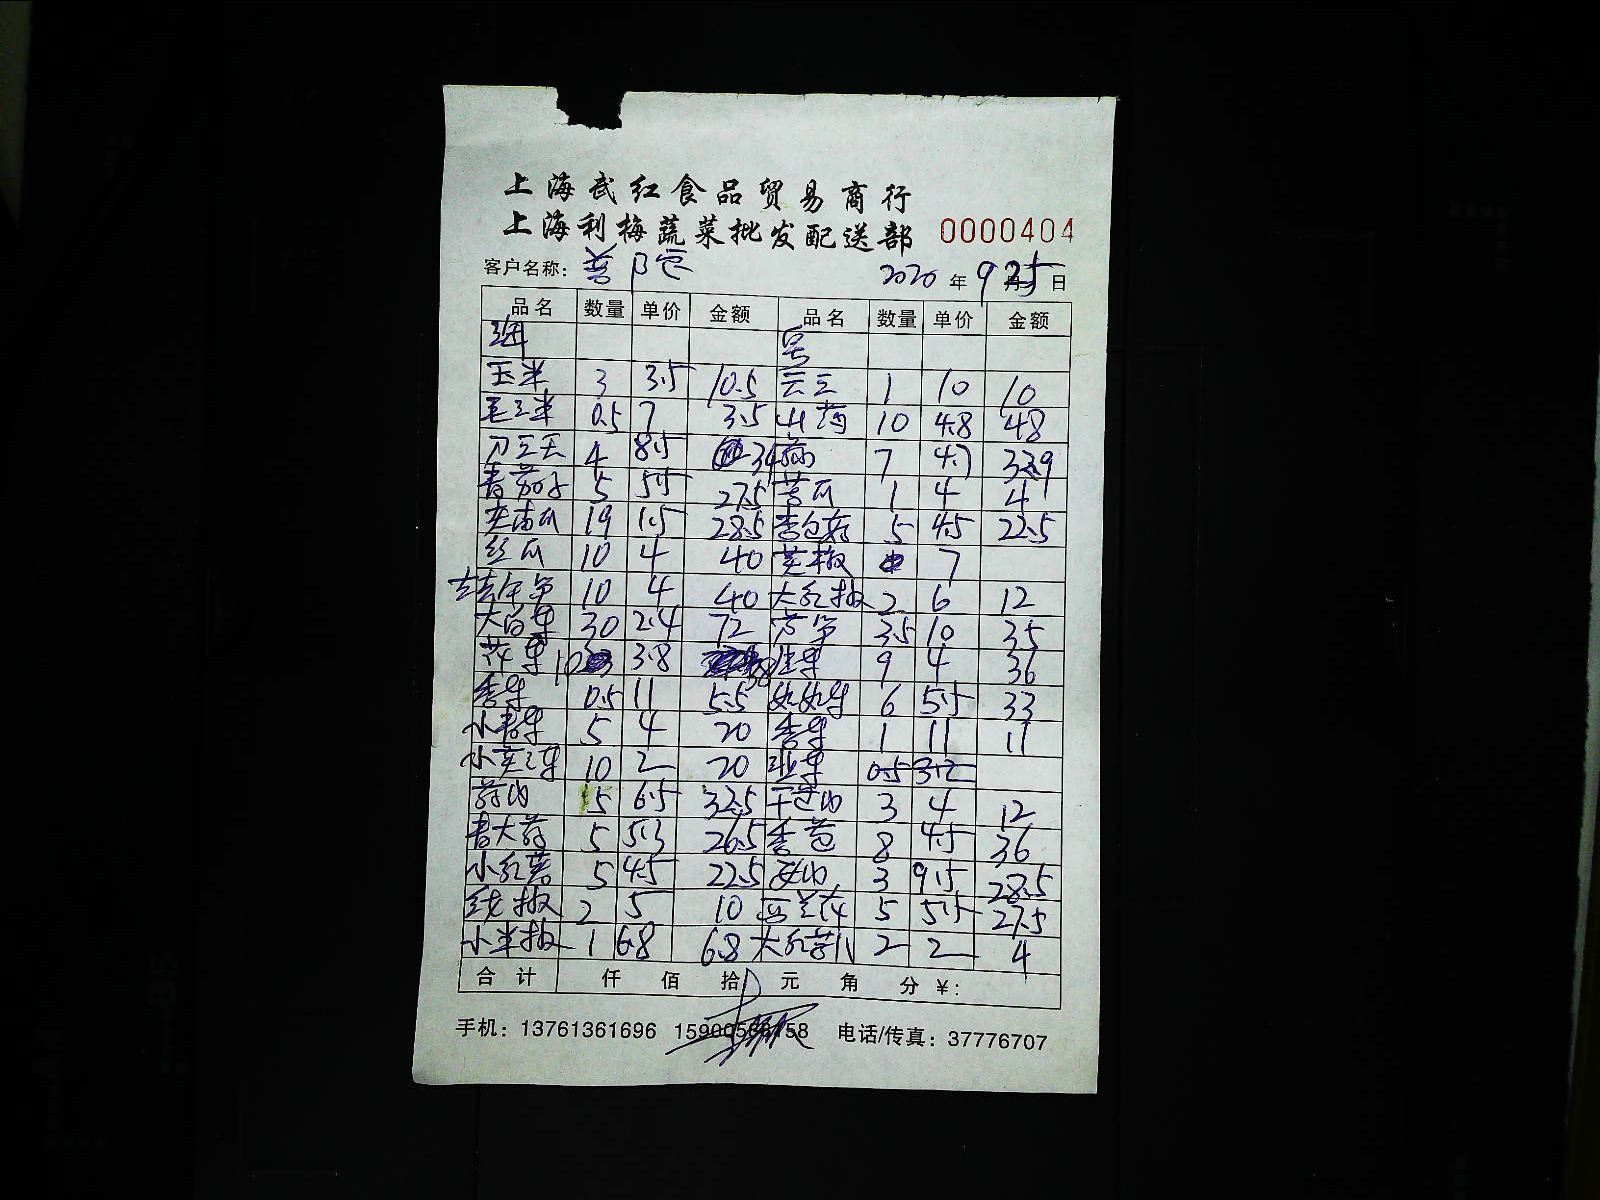 上海武红食品贸易商行
上海利梅蔬菜批发配送部 0000404
客户名称： 2020 年 9 月 25 日
品名 数量 单价 金额 品名 数量 单价 金额
号
玉米 3 3.5 10.5 云豆 1 10 10
毛豆米 0.5 7 3.5 山药 10 4.8 48
刀豆 4 8.5 34 7 4.7 32.9
青茄子 5 5.5 27.5 苦瓜 1 4 4
南瓜 19 1.5 28.5 杏包菇 5 4.5 22.5
丝瓜 10 4 40 尖椒 7
10 4 40 大红椒 2 6 12
大白菜 30 2.4 72 芦笋 3.5 10 35
花菜 10 3.8 38 生菜 9 4 36
香菜 0.5 11 5.5 6 5.5 33
小青菜 5 4 20 香菜 1 11 11
10 2 20 0.5 32
5 6.5 32.5 3 4 12
青大 5 5.3 26.5 香 8 4.5 36
小红 5 4.5 22.5 3 9.5 28.5
线椒 2 5 10 西兰花 5 5.5 27.5
小米椒 1 6.8 6.8 大红 2 2 4
合计 仟 佰 拾 元 角 分 ￥：
手机：13761361696 15900566158 电话/传真：37776707